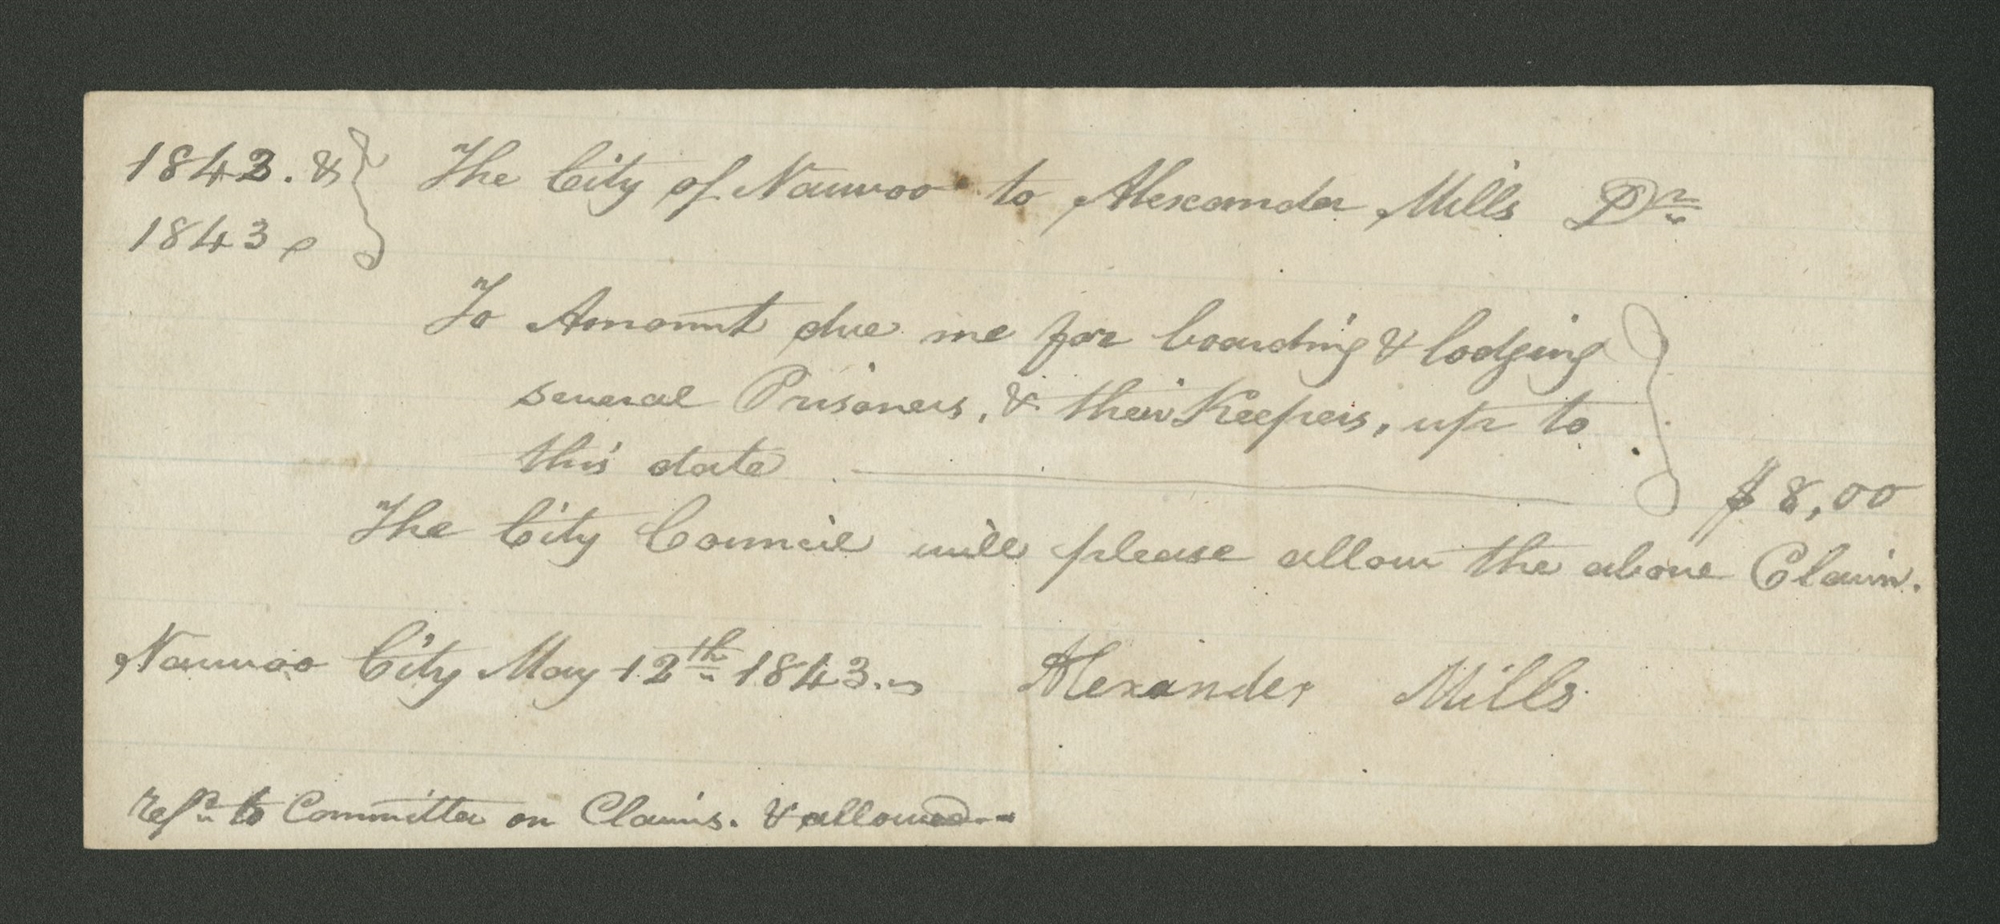 1842. & } The City of Nauvoo to Alexander Mills Dr
1843. }
To Amount due me for boarding & lodging
several Prisoners, & their Keepers, up to
this date $8,00
The City Council will please allow the above Claim.
Nauvoo City May 12th 1843. Alexander Mills
refd to Committee on Claims. & allowed